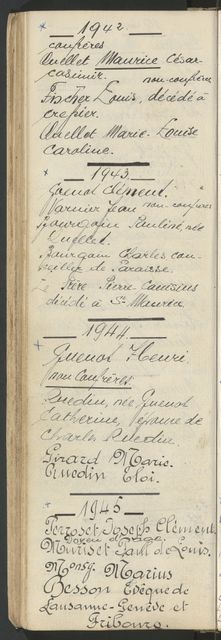 * — 1942 —
confrères
Quellet Maurice César-
casimir. non-confrère
Fischer Louis, décédé à
cressier.
Quellot Marie-Louise
Caroline.
* — 1943 —
Guenot Clément. "
Varnier Jean non-confrères
Bourgoin Pauline, née
Quellet.
Bourgoin Charles con-
seiller de Paroisse.
Le Frère Pierre Canisius
décédé à St Maurice
* — 1944 —
Guenot Henri
non Confrères
Ruedin, née Guenot
Catherine, épouse de
Charles Ruedin.
Girard Marie.
Ruedin Eloi.
* — 1945 —
Perroset Joseph Clément
Doyen d'âge
Muriset Paul de Louis.
Monsg. Marius
Besson Evêque de
Lausanne-Genève et
Fribourg.